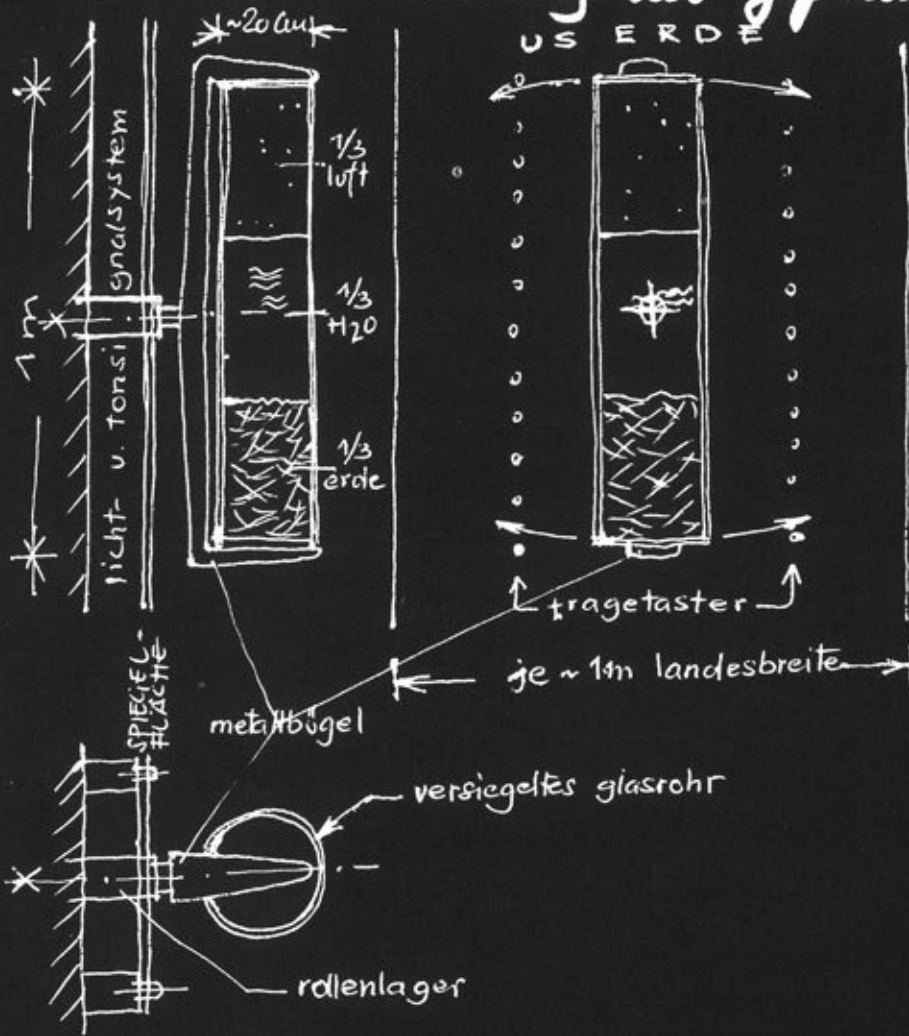 ~20 cm
US ERDE
1/3
luft
1 m
licht- u. tonsignalsystem
1/3
H2O
1/3
erde
fragetaster
je ~ 1m landesbreite
SPIEGEL-
FLÄCHE
metallbügel
versiegeltes glasrohr
rollenlager